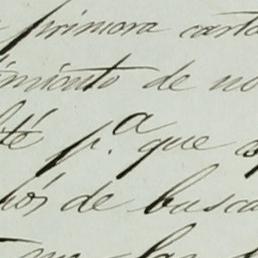 primera carta
imiento de no
té p.ª que
hós de busca